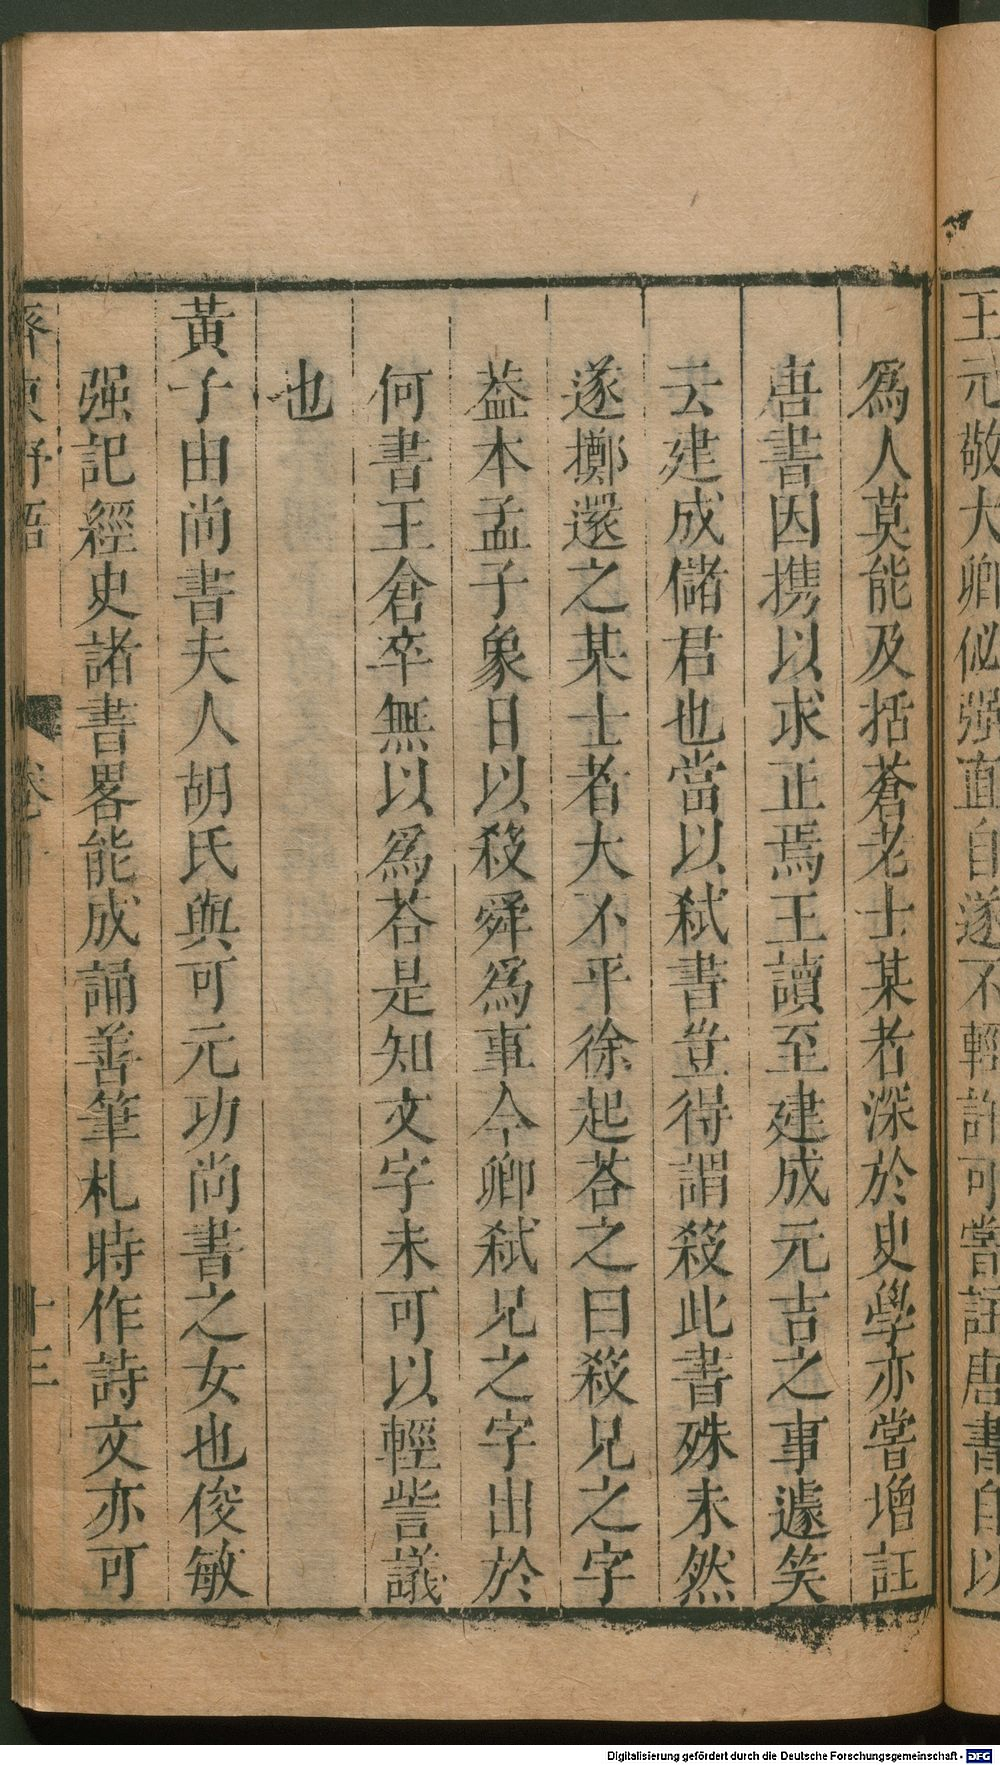 王元敬大卿佖强直自遂不輕許可嘗註唐書自以
爲人莫能及括蒼老士某者深於史學亦嘗增註
唐書因携以求正焉王讀至建成元吉之事遽笑
云建成儲君也當以弑書豈得謂殺此書殊未然
遂擲還之某士者大不平徐起荅之曰殺兄之字
葢本孟子象日以殺舜爲事今卿弑兄之字出於
何書王倉卒無以爲荅是知文字未可以輕訾議
也
黃子由尚書夫人胡氏與可元功尚書之女也俊敏
强記經史諸書畧能成誦善筆札時作詩文亦可
齊東野語 卷十 十三
Digitalisierung gefördert durch die Deutsche Forschungsgemeinschaft - DFG